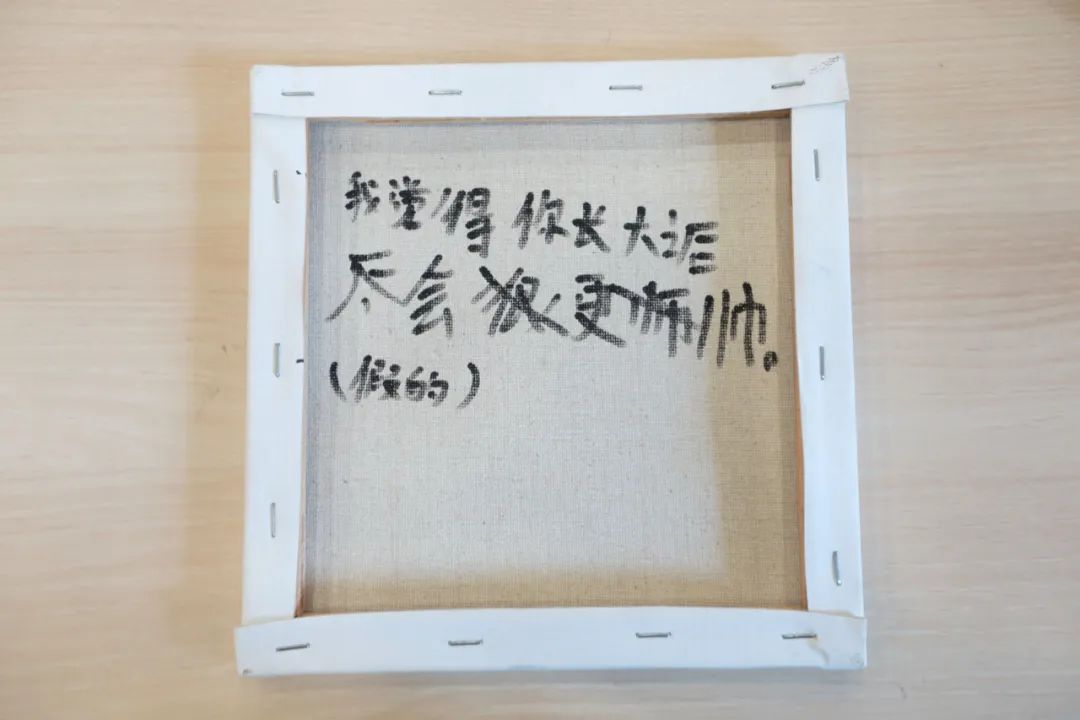 我觉得你长大后
不会狠更师帅。
(假的)